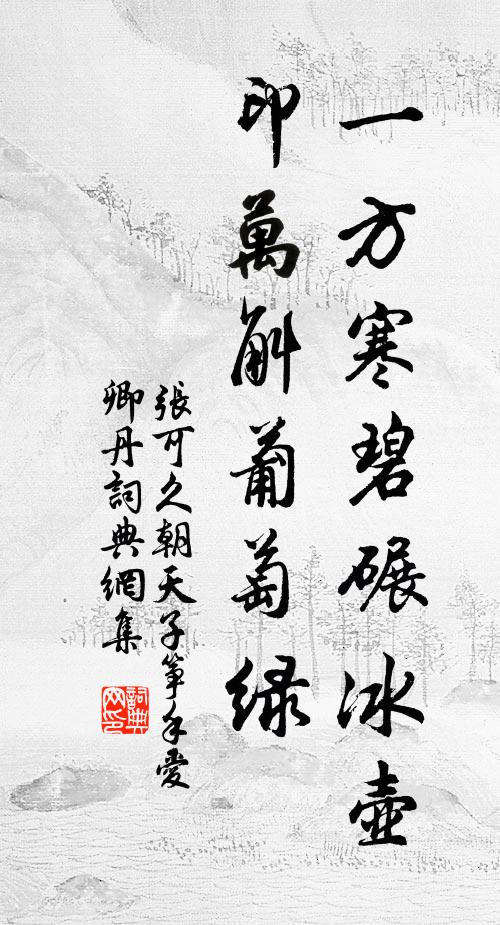 一方寒碧碾冰壺
印萬斛葡萄綠
張可久朝天子箏手愛
卿丹詞典網集
詞典
网印